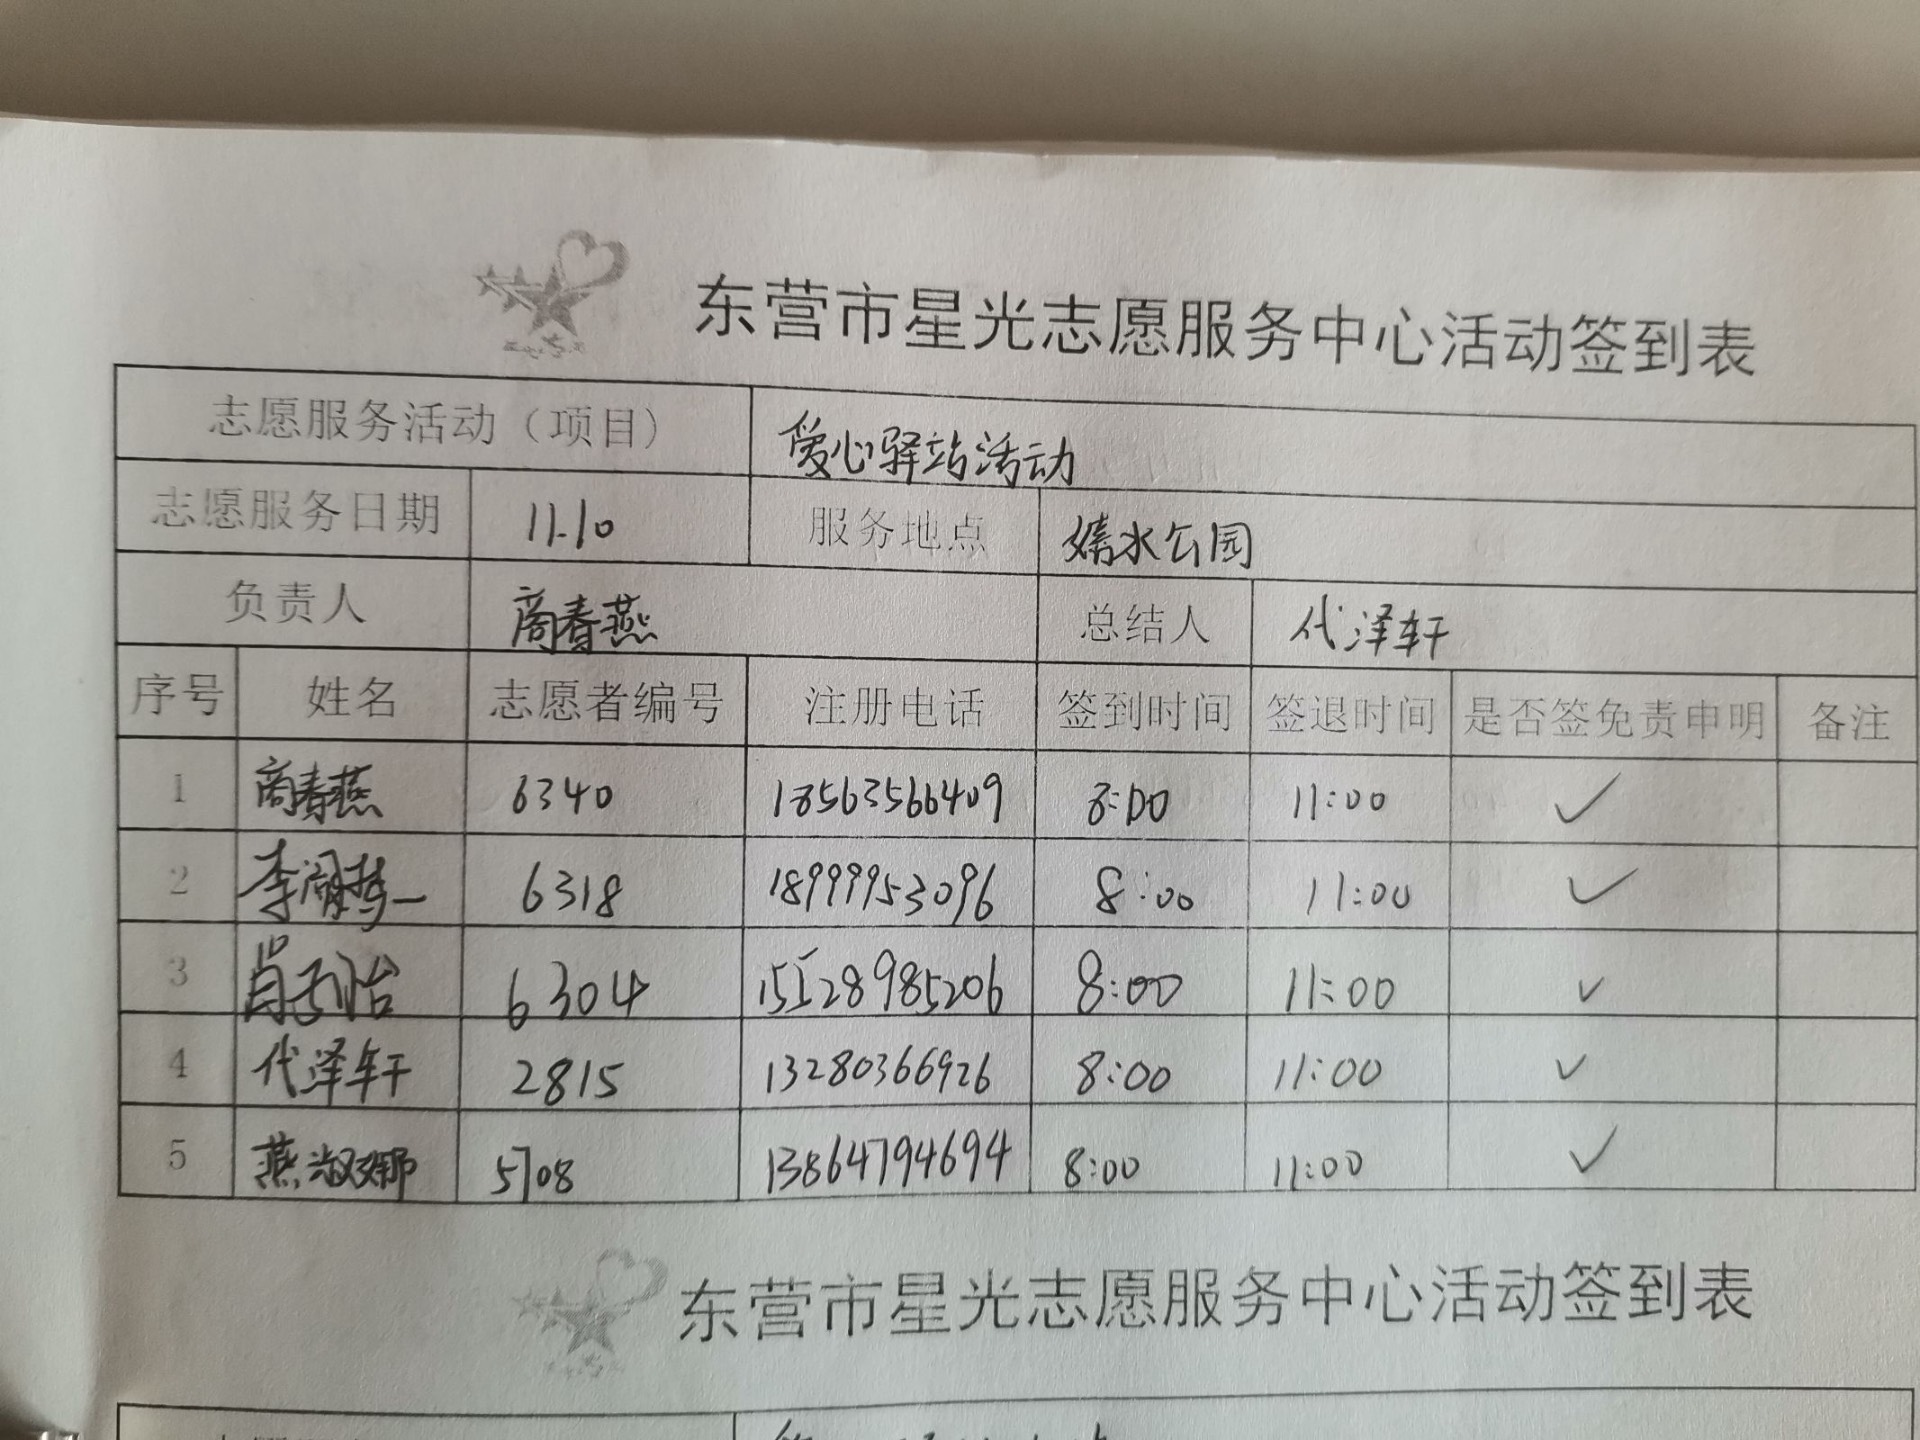 东营市星光志愿服务中心活动签到表
志愿服务活动（项目） 爱心驿站活动
志愿服务日期 11.10 服务地点 嬉水公园
负责人 商春燕 总结人 代泽轩
序号 姓名 志愿者编号 注册电话 签到时间 签退时间 是否签免责申明 备注
1 商春燕 6340 18563566409 8:00 11:00 ✓
2 李 一 6318 18999953096 8:00 11:00 ✓
3 肖 怡 6304 15528985206 8:00 11:00 ✓
4 代泽轩 2815 13280366926 8:00 11:00 ✓
5 燕淑娜 5708 13864794694 8:00 11:00 ✓
东营市星光志愿服务中心活动签到表